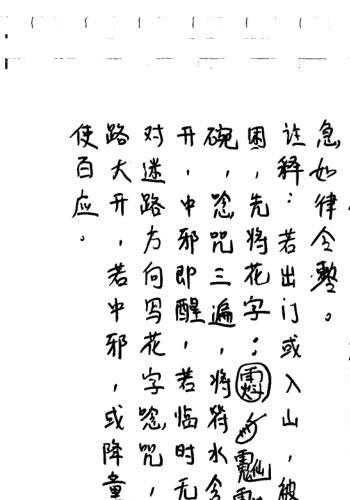 急如律令。
注释：若出门或入山，被
困，先将花字：
碗，唸咒三遍，将符水含
开，中邪即醒，若临时无
对迷路方向写花字唸咒，
路大开，若中邪，或降童
使百应。